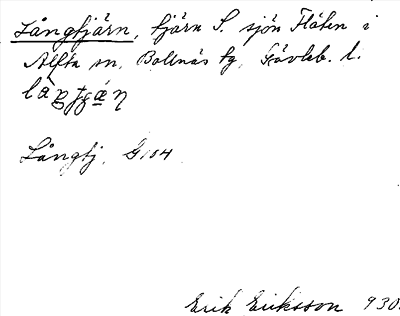 Långtjärn, tjärn S. sjön Flåten i
Alfta sn, Bollnäs tg, Gävleb. l.
Långtj. G 104
Erik Eriksson 930.